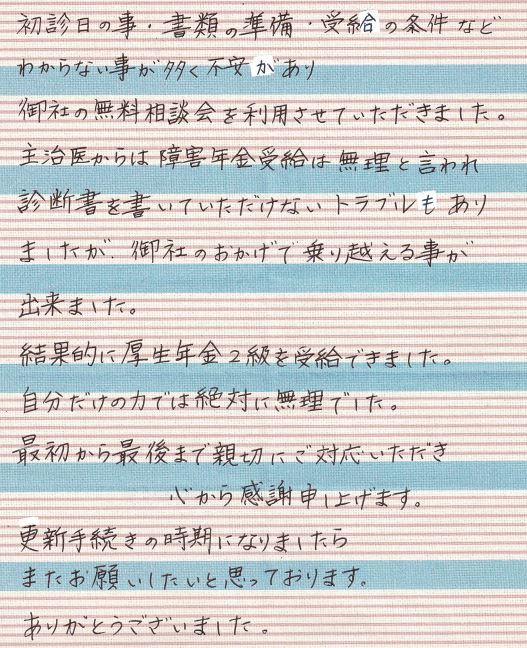 初診日の事・書類の準備・受給の条件など
わからない事が多く不安があり
御社の無料相談会を利用させていただきました。
主治医からは障害年金受給は無理と言われ
診断書を書いていただけないトラブルもあり
ましたが、御社のおかげで乗り越える事が
出来ました。
結果的に厚生年金2級を受給できました。
自分だけの力では絶対に無理でした。
最初から最後まで親切にご対応いただき
心から感謝申し上げます。
更新手続きの時期になりましたら
またお願いしたいと思っております。
ありがとうございました。